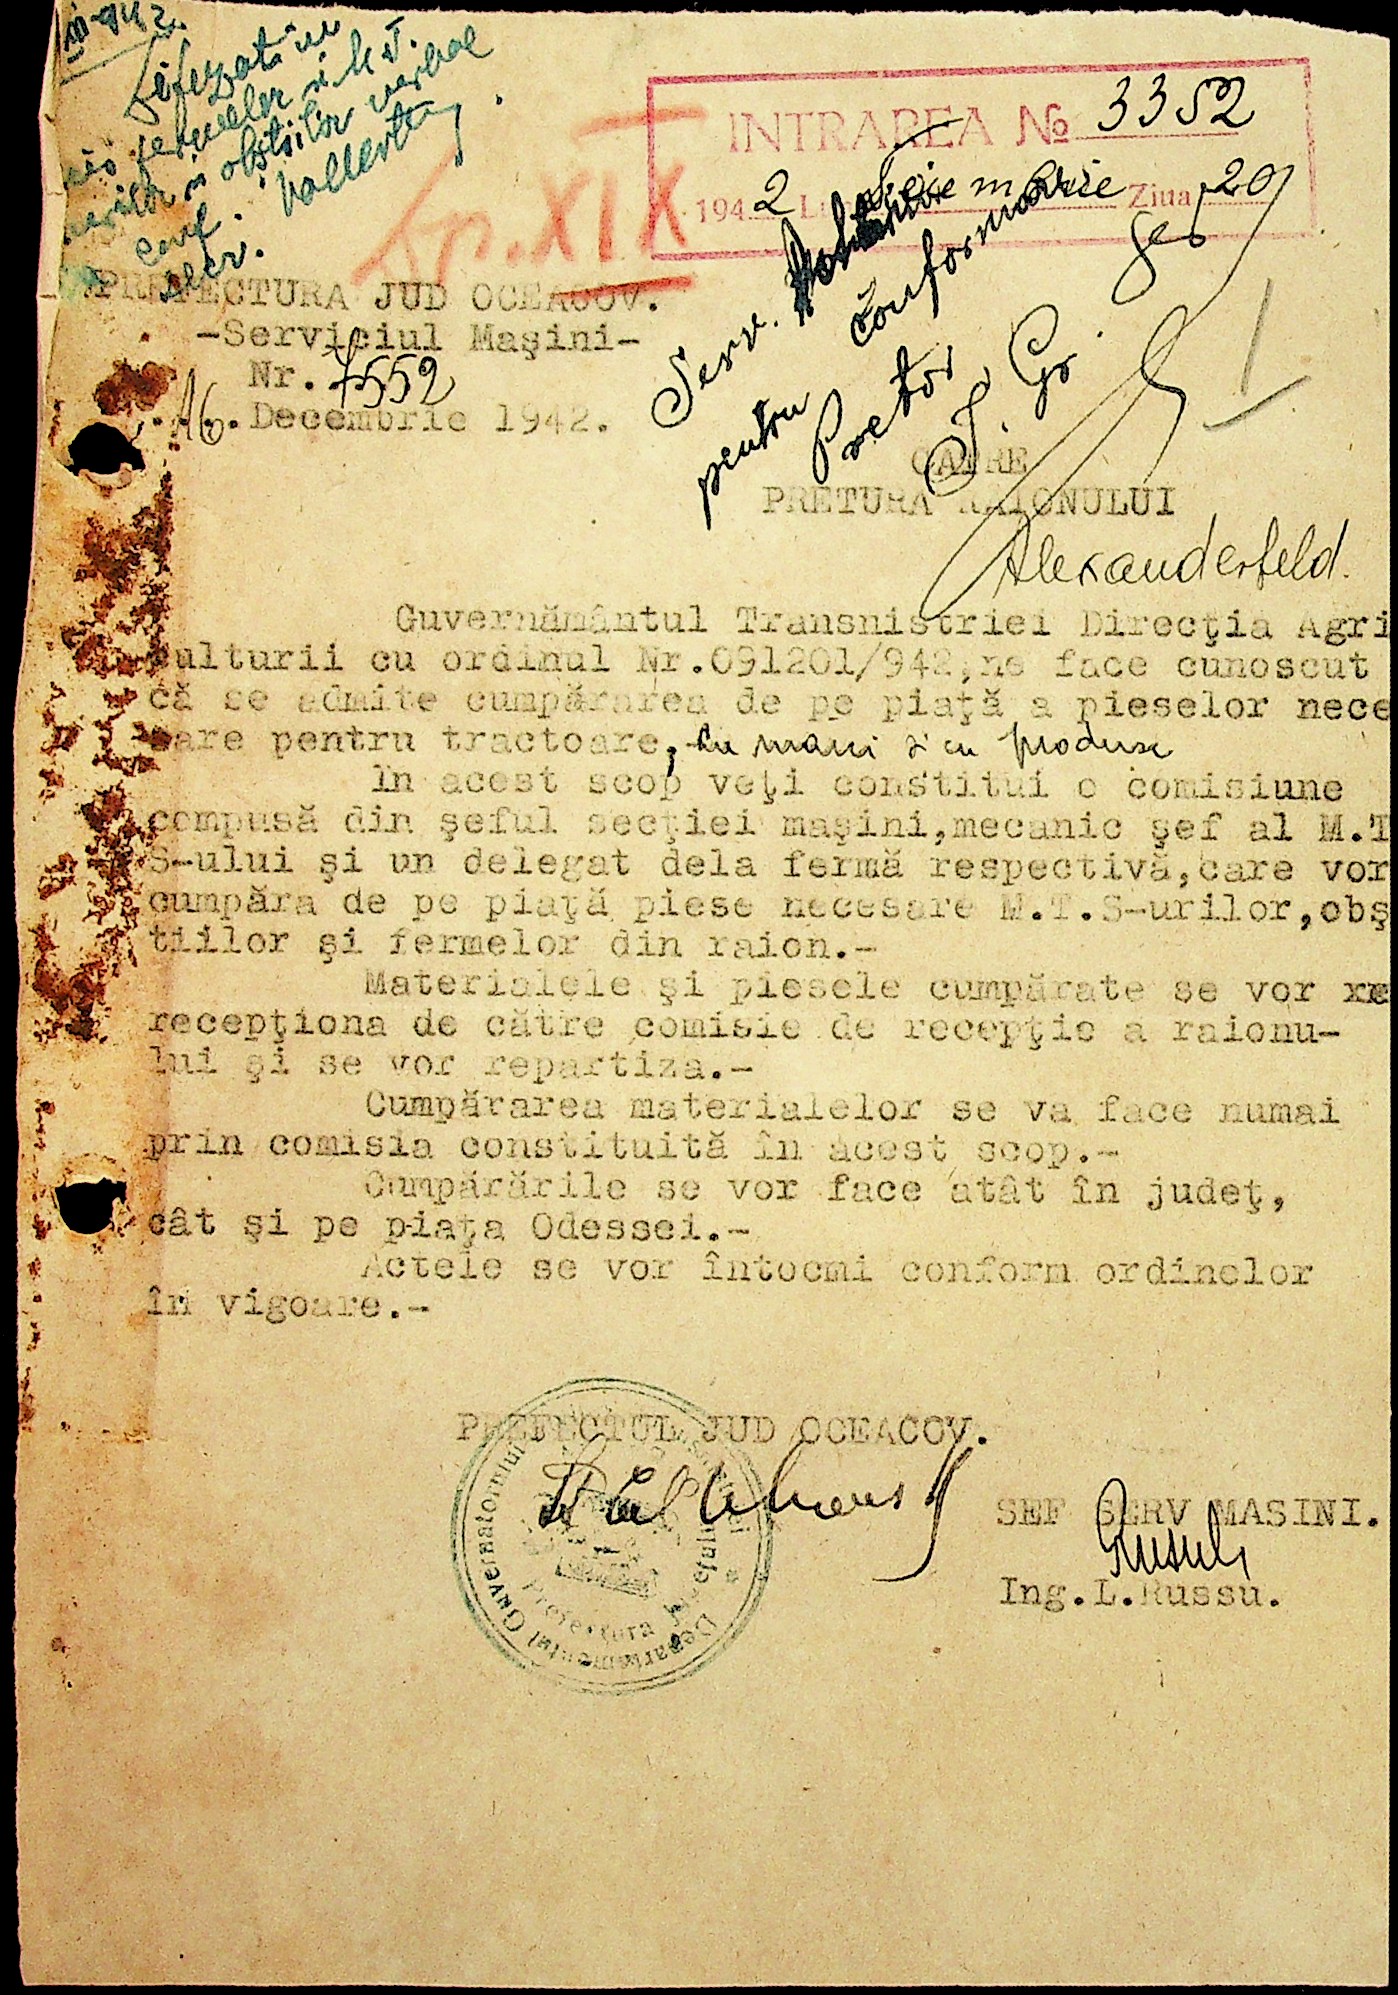 INTRAREA № 3352
194 2 Luna Decembrie Ziua 20
Sp. XIX
PREFECTURA JUD OCEACOV.
-Serviciul Maşini-
Nr. 7552
.16. Decembrie 1942.
Serv.
pentru conformare
Pretor
CATRE
PRETURA RAIONULUI
Alexanderfeld.
Guvernământul Transnistriei Direcţia Agri
culturii cu ordinul Nr.091201/942,ne face cunoscut
că se admite cumpărarea de pe piaţă a pieselor nece
sare pentru tractoare, cu marci și cu produse
În acest scop veţi constitui o comisiune
compusă din şeful secţiei maşini,mecanic şef al M.T
S-ului şi un delegat dela fermă respectivă,care vor
cumpăra de pe piaţă piese necesare M.T.S-urilor,obş
tiilor şi fermelor din raion.-
Materialele şi piesele cumpărate se vor xe
recepţiona de către comisie de recepţie a raionu-
lui şi se vor repartiza.-
Cumpărarea materialelor se va face numai
prin comisia constituită în acest scop.-
Cumpărările se vor face atât în judeţ,
cât şi pe piaţa Odessei.-
Actele se vor întocmi conform ordinelor
în vigoare.-
PREFECTUL JUD OCEACOV.
SEF SERV MASINI.
Ing.L.Russu.
Departamentul Guvernatorului
Prefectura